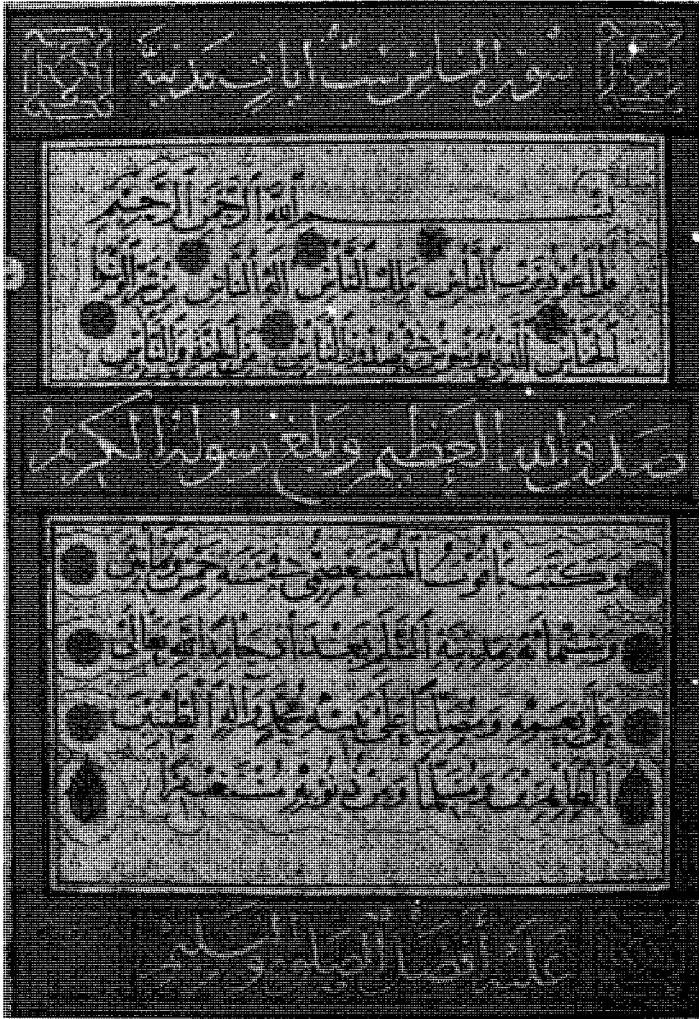 سُورَةُ النَّاسِ سِتُّ آيَاتٍ مَدَنِيَّة
بِسْمِ اللَّهِ الرَّحْمَنِ الرَّحِيمِ
قُلْ أَعُوذُ بِرَبِّ النَّاسِ مَلِكِ النَّاسِ إِلَهِ النَّاسِ مِنْ شَرِّ الْوَسْوَاسِ
الْخَنَّاسِ الَّذِي يُوَسْوِسُ فِي صُدُورِ النَّاسِ مِنَ الْجِنَّةِ وَالنَّاسِ
صَدَقَ اللهُ الْعَظِيمُ وَبَلَّغَ رَسُولُهُ الْكَرِيمُ
وَكَتَبَ يَاقُوتُ الْمُسْتَعْصِمِيُّ فِي سَنَةِ خَمْسٍ وَثَمَانِينَ
وَسِتِّمِائَةٍ بِمَدِينَةِ السَّلَامِ بَعْدَ أَنْ حَامِدًا لِلَّهِ تَعَالَى
عَلَى نِعَمِهِ وَمُصَلِّيًا عَلَى نَبِيِّهِ مُحَمَّدٍ وَآلِهِ الطَّيِّبِينَ
الطَّاهِرِينَ وَمُسَلِّمًا وَمِنْ ذُنُوبِهِ مُسْتَغْفِرًا
عَلَيْهِ أَفْضَلُ الصَّلَاةِ وَالسَّلَامِ